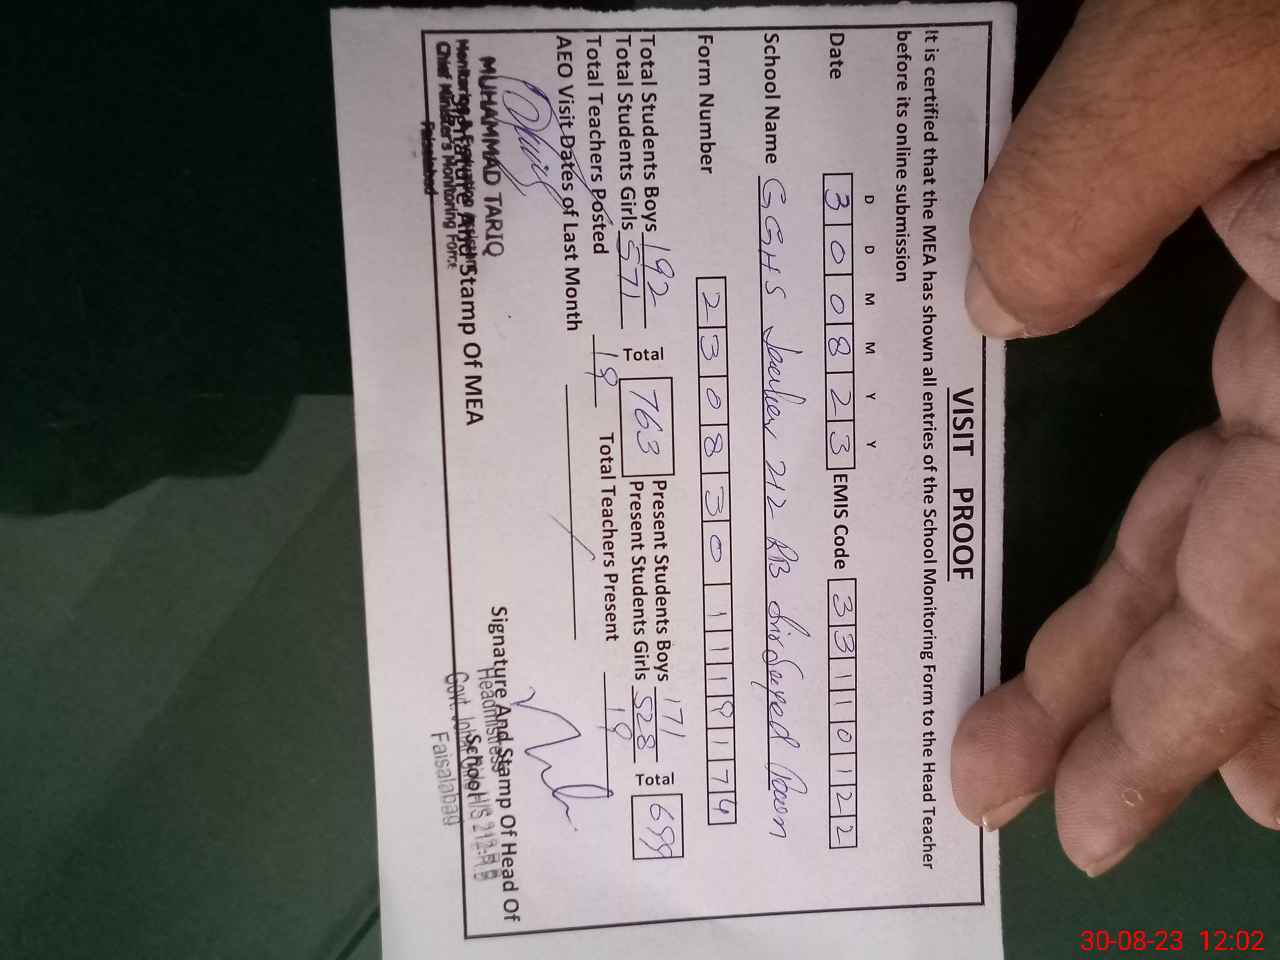 VISIT PROOF
It is certified that the MEA has shown all entries of the School Monitoring Form to the Head Teacher
before its online submission
D D M M Y Y
Date 3 0 0 8 2 3 EMIS Code 3 3 1 1 0 1 2 2
School Name GGHS 212 RB Town
Form Number 2 3 0 8 3 0 1 1 1 9 1 7 4
Total Students Boys 192 Total 763 Present Students Boys 171 Total 699
Total Students Girls 571 Present Students Girls 528
Total Teachers Posted 19 Total Teachers Present 19
AEO Visit Dates of Last Month
MUHAMMAD TARIQ
Monitoring & Evaluation
Chief Minister's Monitoring Force
Faisalabad
Signature And Stamp Of MEA
Signature And Stamp Of Head Of
School
Headmistress
Govt. H/S 212
Faisalabad
30-08-23 12:02